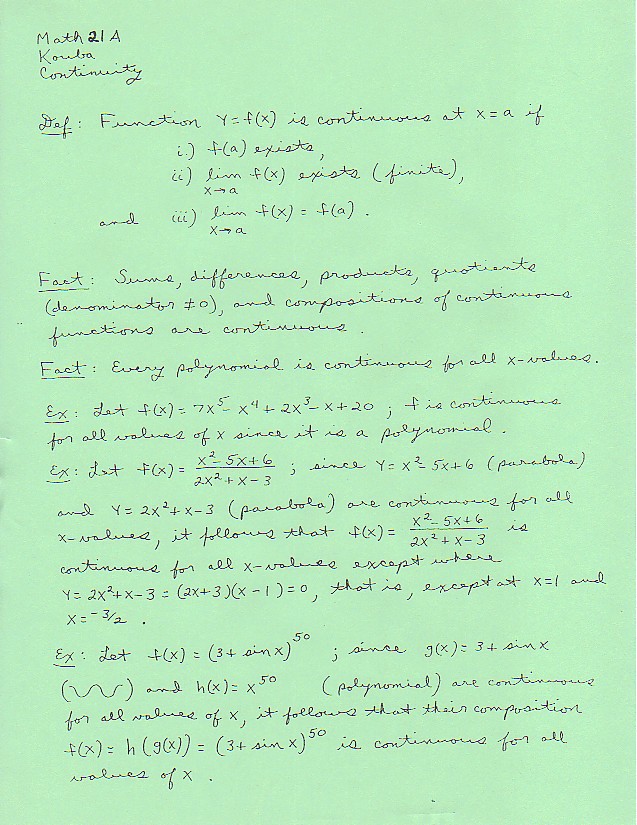 Math 21A
Kouba
Continuity
Def: Function Y=f(x) is continuous at x=a if
i.) f(a) exists,
ii) lim f(x) exists (finite),
x→a
and iii) lim f(x) = f(a).
x→a
Fact: Sums, differences, products, quotients
(denominator ≠0), and compositions of continuous
functions are continuous.
Fact: Every polynomial is continuous for all x-values.
Ex: Let f(x) = 7x⁵ - x⁴ + 2x³ - x + 20 ; f is continuous
for all values of x since it is a polynomial.
Ex: Let f(x) = (x²-5x+6)/(2x²+x-3) ; since Y = x²-5x+6 (parabola)
and Y = 2x²+x-3 (parabola) are continuous for all
x-values, it follows that f(x) = (x²-5x+6)/(2x²+x-3) is
continuous for all x-values except where
Y = 2x²+x-3 = (2x+3)(x-1) = 0, that is, except at x=1 and
x = -3/2 .
Ex: Let f(x) = (3+ sin x)⁵⁰ ; since g(x) = 3+ sin x
( ) and h(x) = x⁵⁰ (polynomial) are continuous
for all values of x, it follows that their composition
f(x) = h(g(x)) = (3+ sin x)⁵⁰ is continuous for all
values of x .